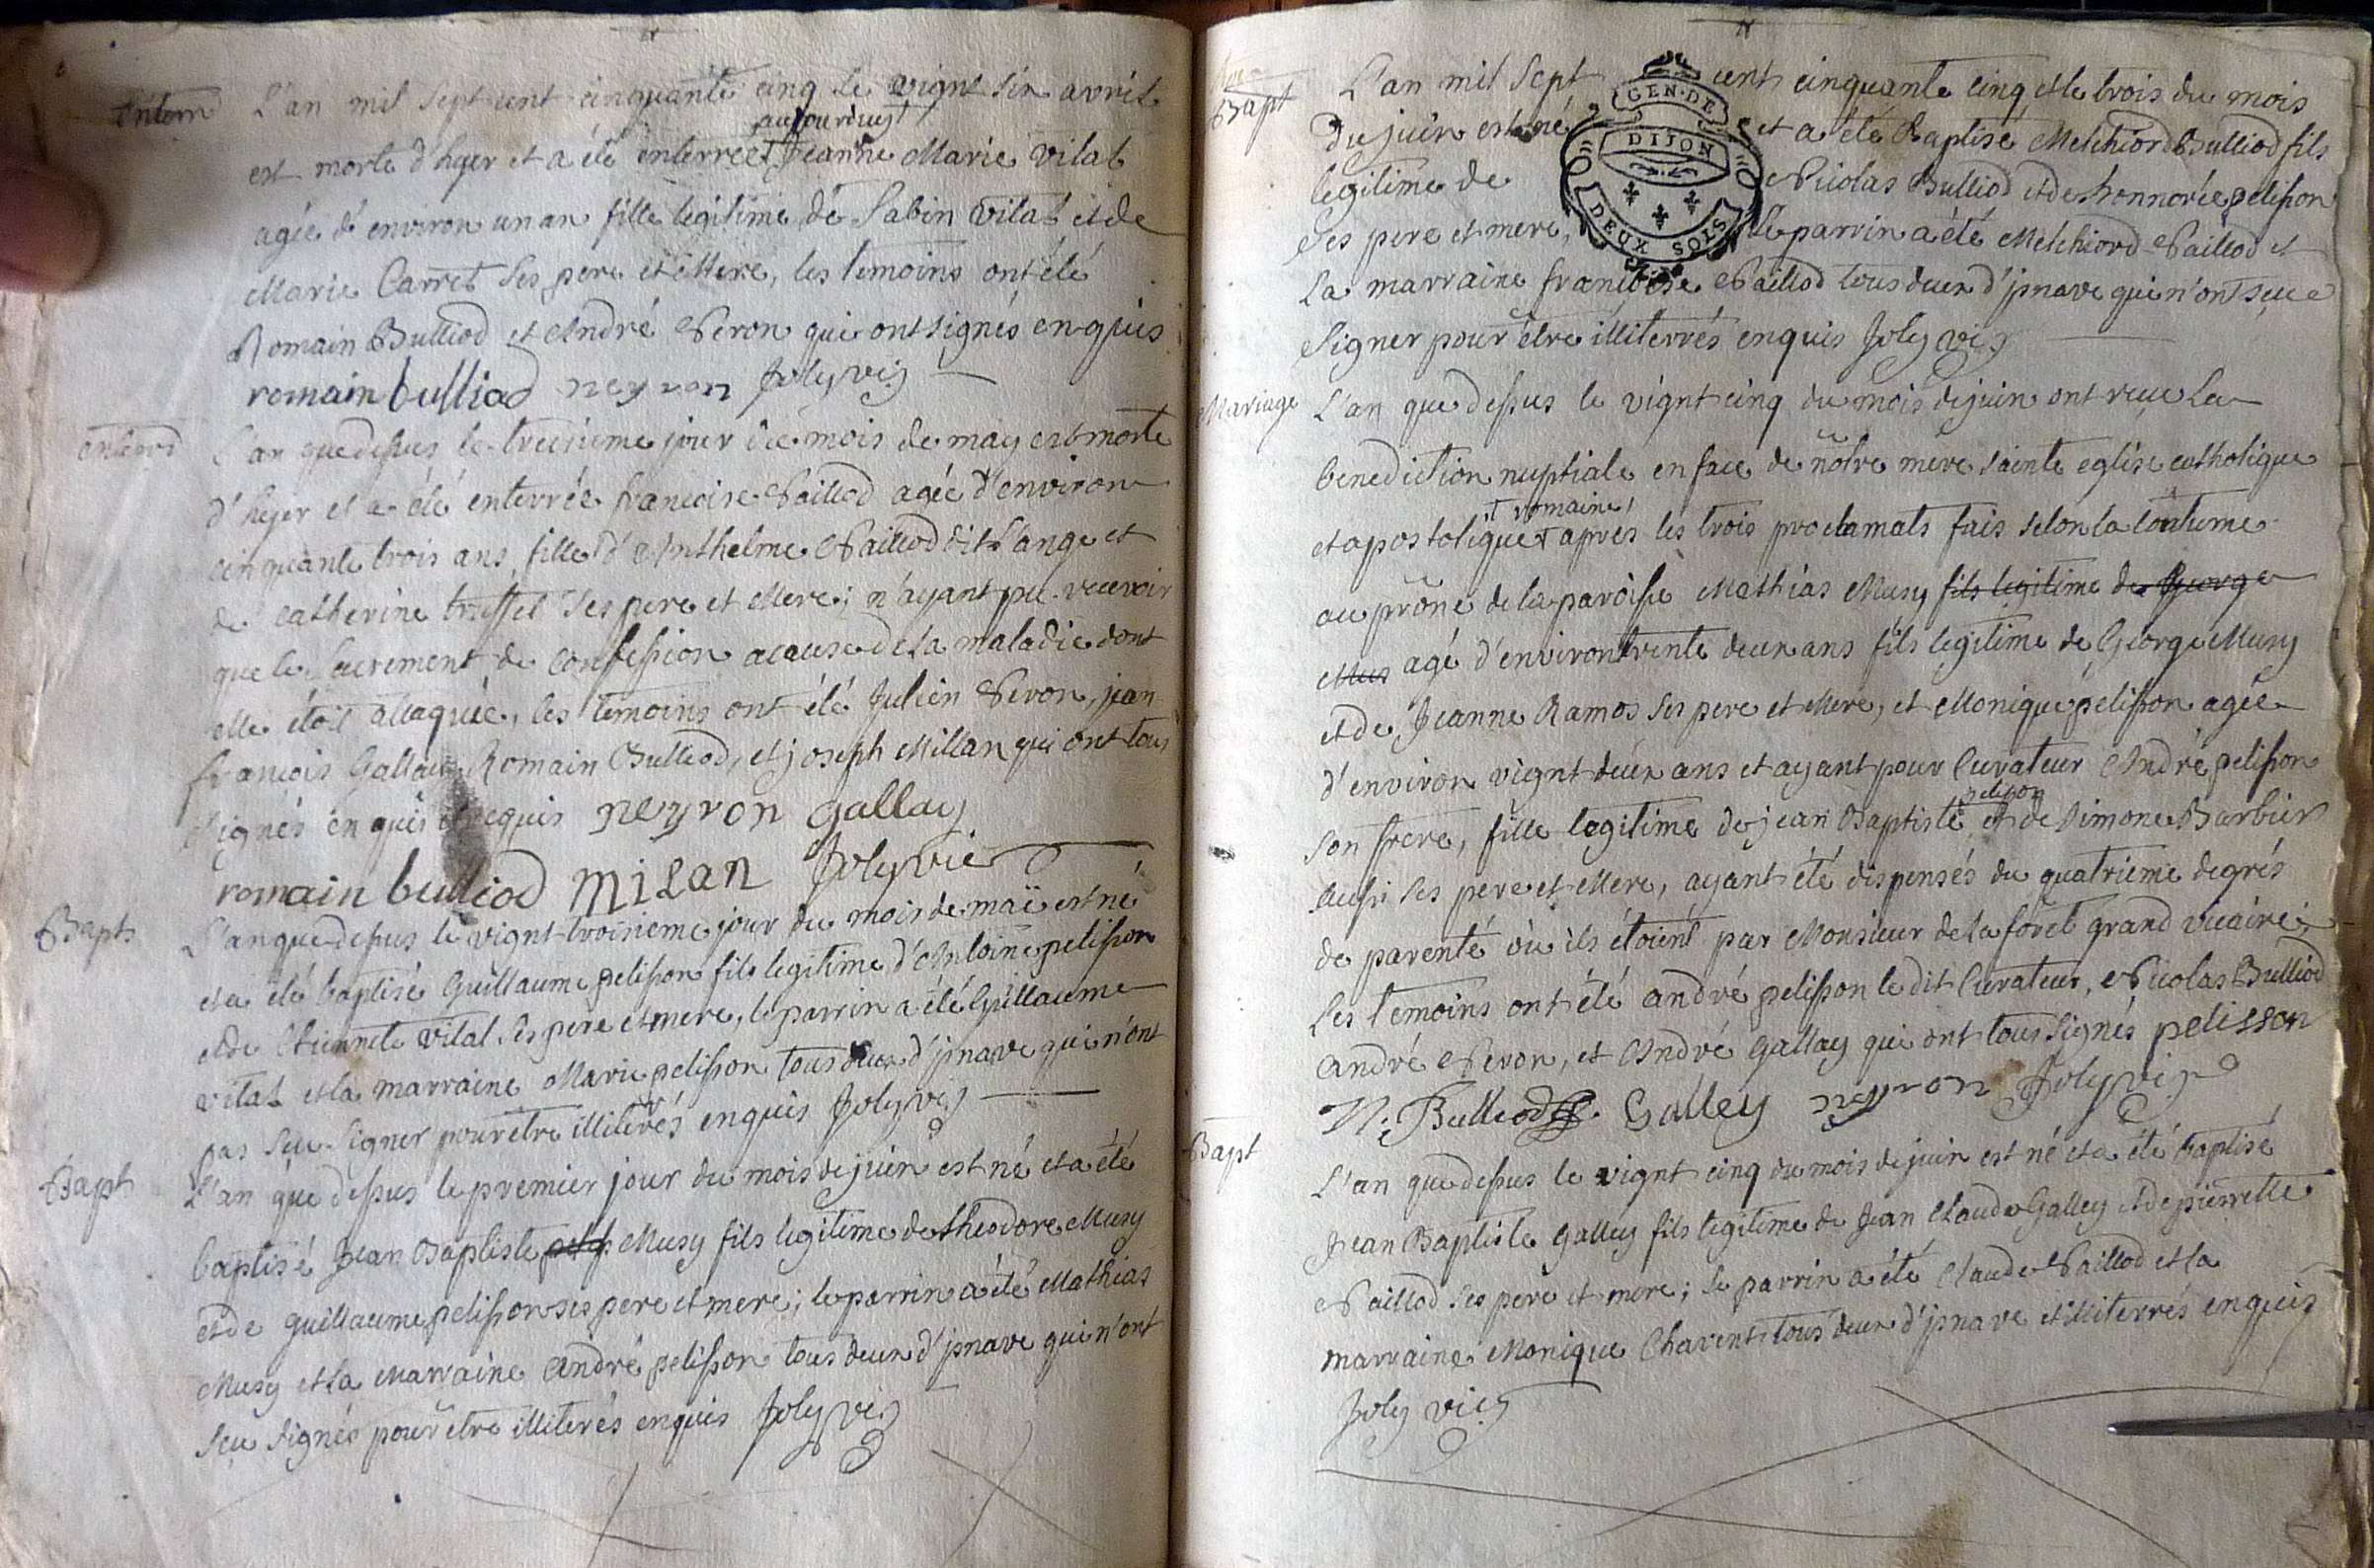 Enterr
L'an mil sept cent cinquante cinq le vignt six avril
aujourdhuy
est morte d'hyer et a été enterrée Jeanne Marie Vilat
agée d'environ un an fille legitime de Sabin Vilat et de
Marie Carret ses pere et Mere, les temoins ont été
Romain Bulliod et André Neron qui ont signés enquis
romain bulliod neyron Joly vic
enterr
L'an que dessus le treisieme jour du mois de may est morte
d'hyer et a été enterrée francoise Paillod agée d'environ
cinquante trois ans, fille d'Anthelme Paillod dit l'ange et
de catherine truffet ses pere et Mere; n'ayant pu recevoir
que le sacrement de confession a cause de la maladie dont
elle étoit attaquée, les temoins ont été Julien Neron, jean
francois Gallay Romain Bulliod, et joseph Millan qui ont tous
signés enquis et requis neyron gallay
romain bulliod Milan Joly vic
Bapts
L'an que dessus le vignt troisieme jour du mois de maï est né
et a été baptisé Guillaume pelisson fils legitime d'Antoine pelisson
et de Etiennete vital ses pere et mere, le parrin a été Guillaume
vital et la marraine Marie pelisson tous deux d'jnave qui n'ont
pas seu signer pour etre illiterés enquis Joly vic
Bapt
L'an que dessus le premier jour du mois de juin est né et a été
baptisé Jean Baptiste Musy fils legitime de theodore Musy
et de guillaume pelisson ses pere et mere; le parrin a été Mathias
Musy et la Marraine André pelisson tous deux d'jnave qui n'ont
seu signés pour etre illiterés enquis Joly vic
Bapt
L'an mil sept cent cinquante cinq et le trois du mois
GEN·DE
DIJON
DEUX SOLS
Du juin est né et a été Baptisé Melchiord Bulliod fils
legitime de Nicolas Bulliod et de honnorée pelisson
Ses pere et mere, le parrin a été Melchiord Paillod et
La marraine francoise Paillod tous deux d'jnave qui n'ont sceu
signer pour être illiterrés enquis Joly vic
Mariage
L'an que dessus le vignt cinq du mois de juin ont reçue la
benediction nuptiale en face de nôtre mere sainte eglise catholique
et romaine
et apostolique après les trois proclamats fais selon la coutume
au prône de la paroisse Mathias Musy fils legitime de George
Mus agé d'environ trente deux ans fils legitime de George Musy
et de Jeanne Ramos ses pere et Mere, et Monique pelisson agée
d'environ vignt deux ans et ayant pour Curateur André pelisson
pelisson
son frere, fille legitime de jean Baptiste et de Simone Barbier
aussi ses pere et Mere, ayant été dispensés du quatrieme degrés
de parenté où ils étoient par Monsieur de la forêt grand vicaire;
Les temoins ont été andré pelisson le dit Curateur, Nicolas Bulliod
André Neron, et André gallay qui ont tous signés pelisson
N: Bulliod Galley neyron Joly vic
Bapt
L'an que dessus le vignt cinq du mois de juin est né et a été baptisé
Jean Baptiste Galley fils legitime de Jean Claude Galley et de pierrette
Paillod ses pere et mere; le parrin a été Claude Paillod et la
marraine Monique Charvent tous deux d'jnave et illiterrés enquis
Joly vic